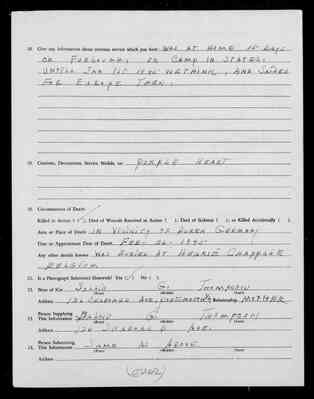 18. Give any information about overseas service which you have: WAS AT HOME 15 DAYS
ON FURLOUGH, IN CAMP IN STATES.
UNTILL JAN 1ST 1945 WE THINK, AND SAILED
FOR EUROPE THEN.
19. Citations, Decorations, Service Medals, etc. PURPLE HEART
20. Circumstances of Death:
Killed in Action ( ); Died of Wounds Received in Action ( ); Died of Sickness ( ); or Killed Accidentally ( ).
Area or Place of Death IN VICINITY OF DUREN GERMANY
Time or Approximate Date of Death FEB. 26, 1945
Any other details known WAS BURIED AT HENRI CHAPPELLE
BELGIUM.
21. Is a Photograph (Selection) Herewith? Yes ( ) No ( ).
22. Next of Kin G. THOMPSON
Address AVE., PORTSMOUTH, Relationship MOTHER
23. Person Supplying
This Information G. THOMPSON
Address AVE.
24. Person Submitting
This Information SAME AS ABOVE
Address
(OVER)